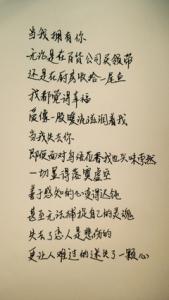 当我拥有你
无论是在百货公司买领带
还是在厨房收拾一尾鱼
我都觉得幸福
爱像一股暖流滋润着我
当我失去你
即使面对乌龙茶香我也只味索然
一切显得落寞虚空
善于感知的心变得迟钝
甚至无法捕捉自己的灵魂
失去了恋人是悲伤的
更让人难过的迷失了一颗心